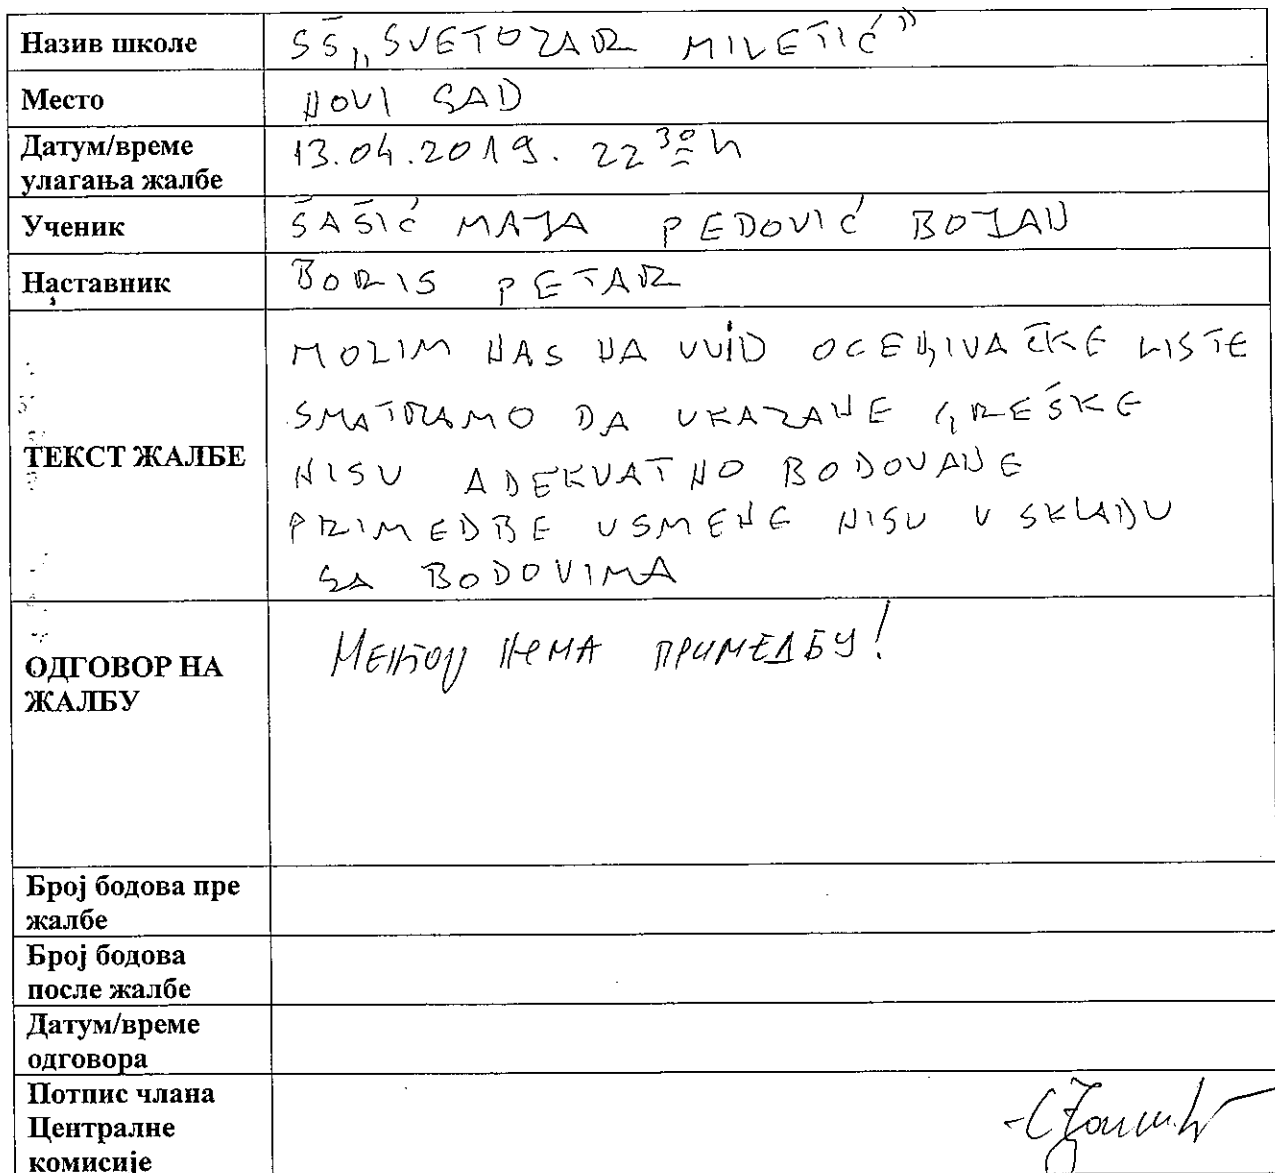 Назив школе SŠ „SVETOZAR MILETIĆ"
Место NOVI SAD
Датум/време 13.04.2019. 22 30 h
улагања жалбе
Ученик ŠAŠIĆ MAJA PEDOVIĆ BOJAN
Наставник BORIS PETAR
MOLIM NAS NA UVID OCENJIVAČKE LISTE
SMATRAMO DA UKAZANE GREŠKE
ТЕКСТ ЖАЛБЕ
NISU ADEKVATNO BODOVANE
PRIMEDBE USMENE NISU U SKLADU
SA BODOVIMA
Ментор нема примедбу!
ОДГОВОР НА
ЖАЛБУ
Број бодова пре
жалбе
Број бодова
после жалбе
Датум/време
одговора
Потпис члана
Централне
комисије